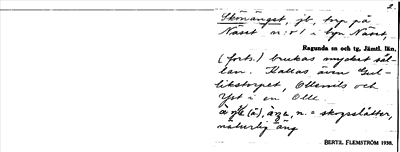 2.
Skönänget, jb, torp på
Näset n:r 1 i byn Näset,
Ragunda sn och tg, Jämtl. län.
(forts.) brukas mycket säl-
lan. Kallas även Gul-
likstorpet, Ollemils och
i en Olle
n. = skogsslåtter,
naturlig äng
BERTIL FLEMSTRÖM 1930.